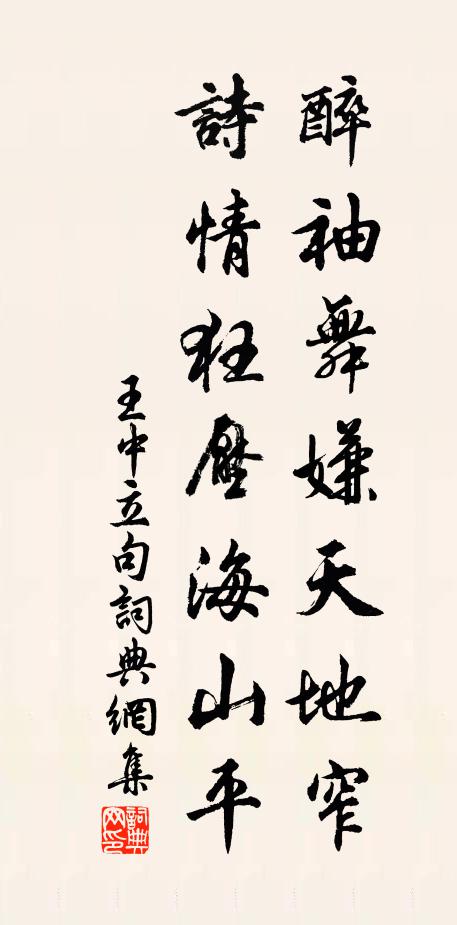 醉袖舞嫌天地窄
詩情狂壓海山平
王中立句詞典網集
詞典網印